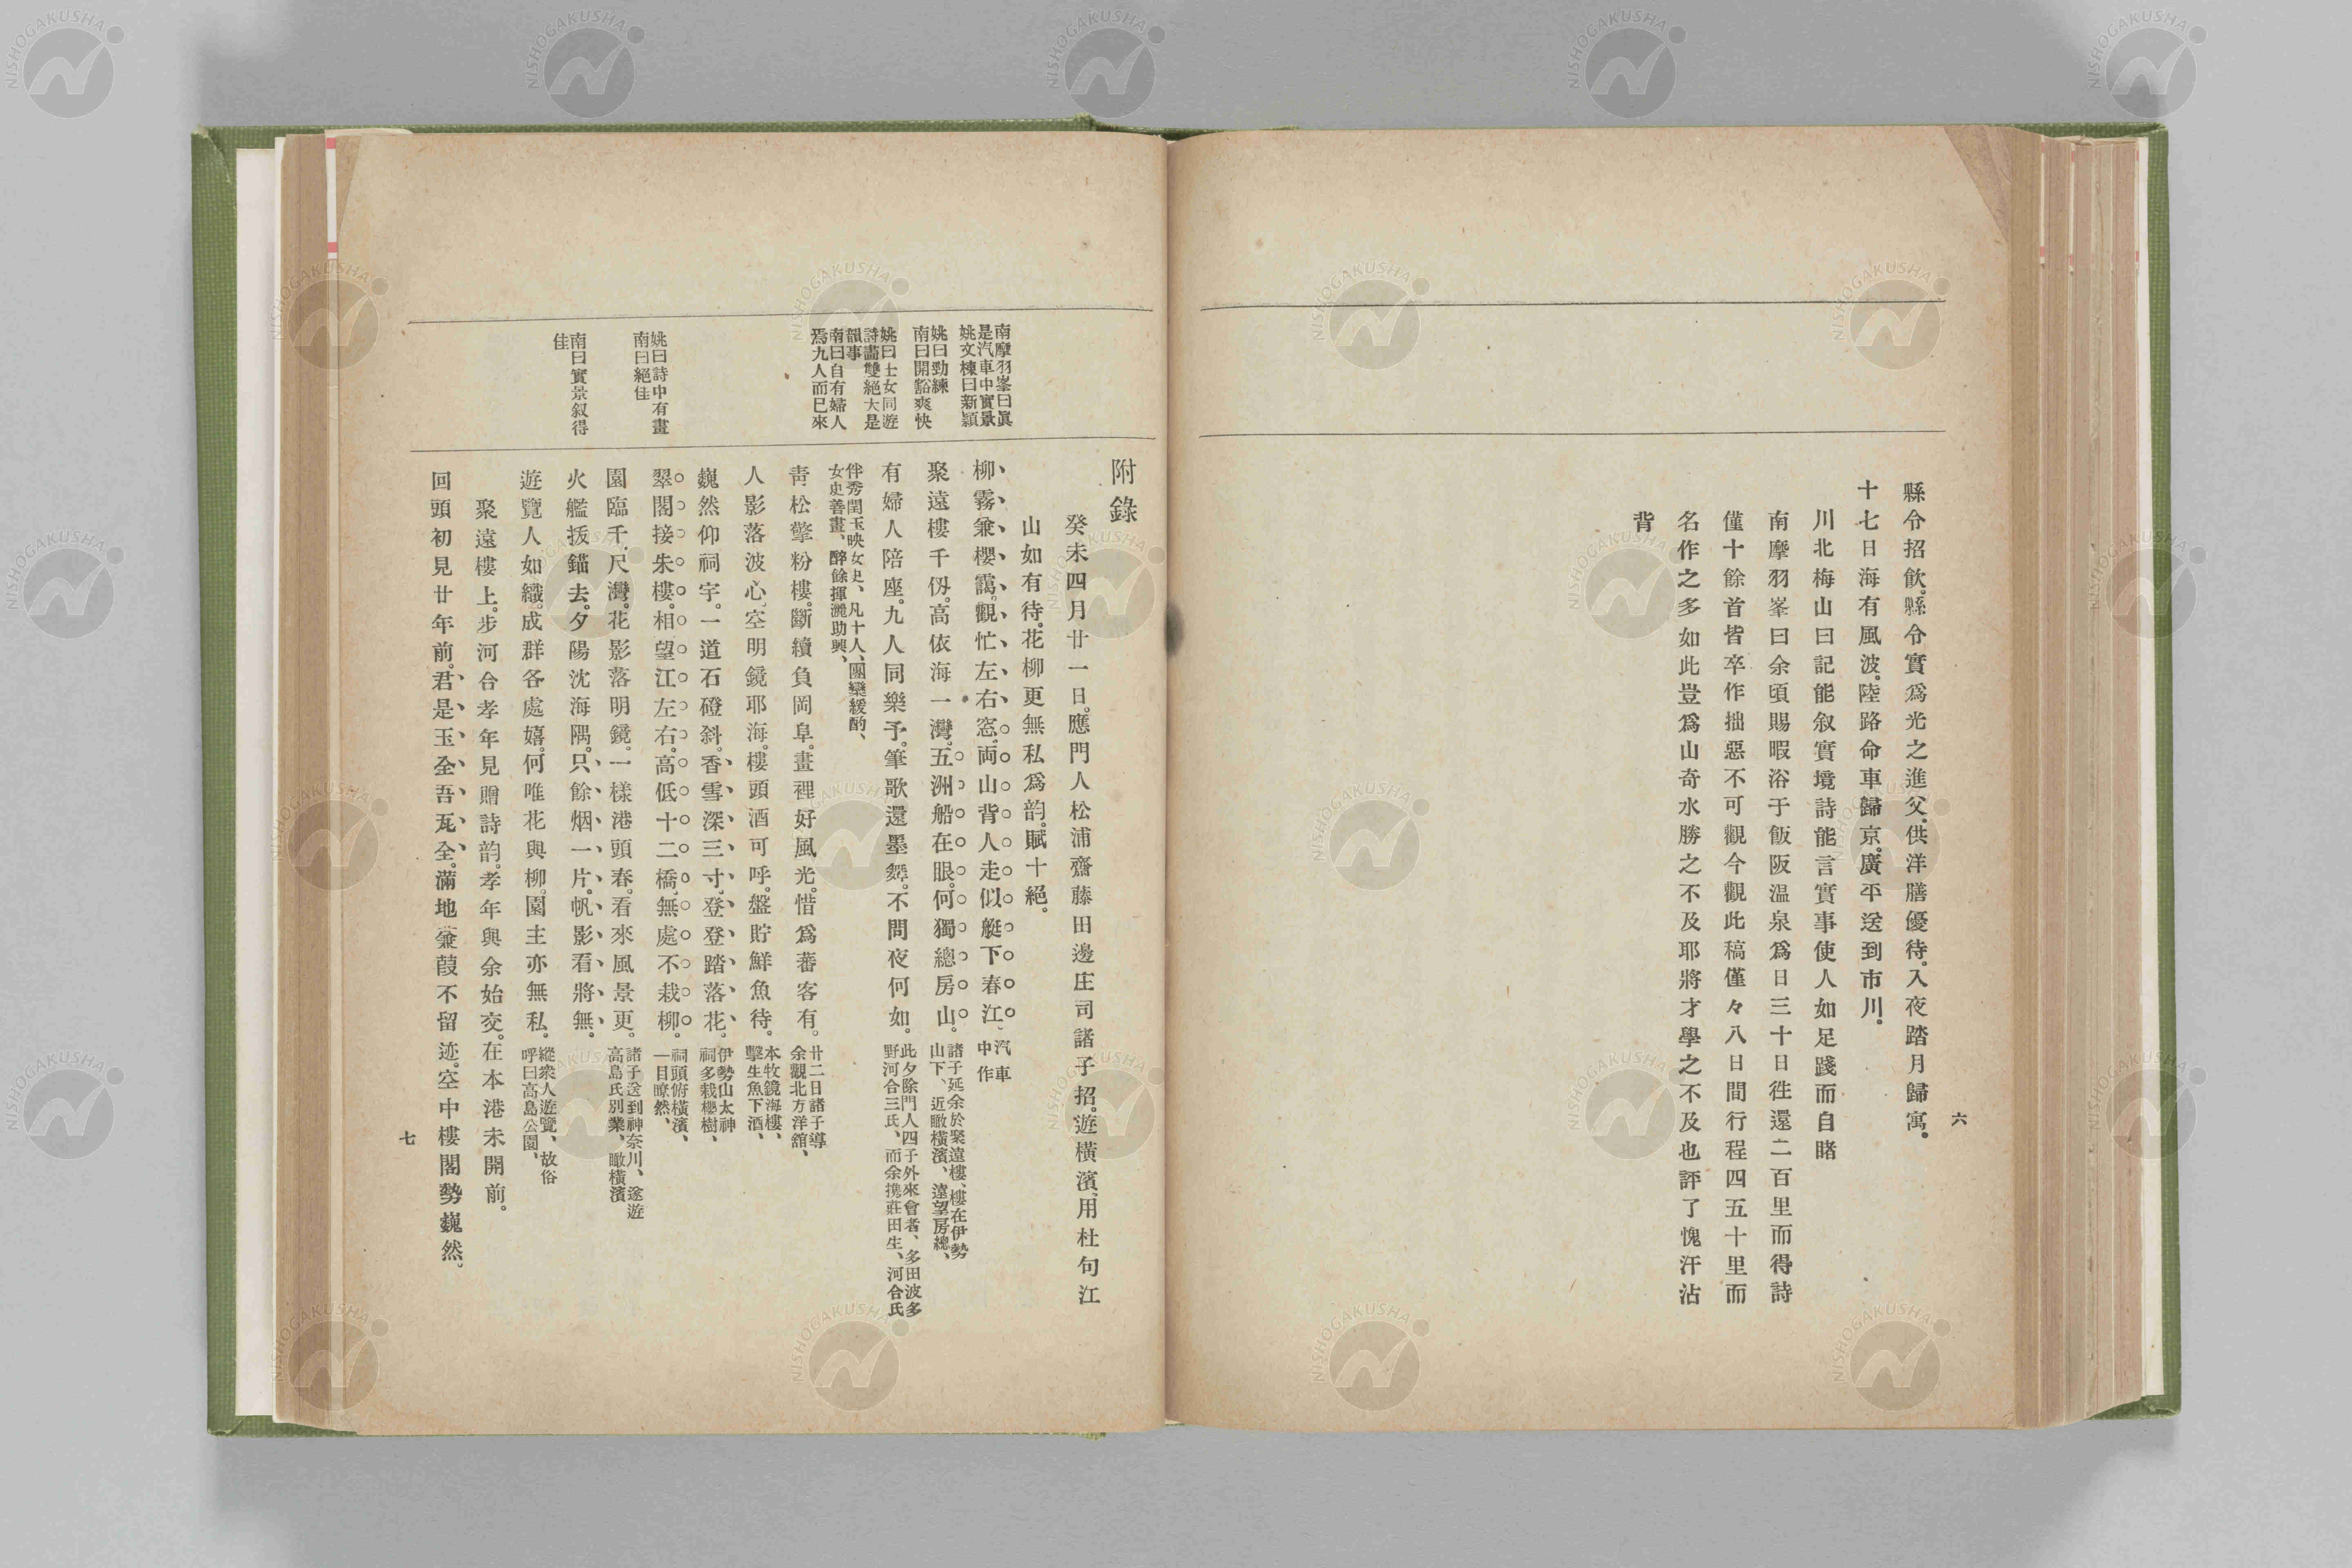 縣令招飮。縣令實爲光之進父。供洋膳優待。入夜踏月歸寓。
十七日海有風波。陸路命車歸京。廣平送到市川。
川北梅山曰記能叙實境詩能言實事使人如足踐而自睹
南摩羽峯曰余頃賜暇浴于飯阪温泉爲日三十日徃還二百里而得詩
僅十餘首皆卒作拙惡不可觀今觀此稿僅々八日間行程四五十里而
名作之多如此豈爲山奇水勝之不及耶將才學之不及也評了愧汗沾
背
六
附錄
癸未四月廿一日。應門人松浦齋藤田邊庄司諸子招。遊橫濱、用杜句江
山如有待。花柳更無私爲韵。賦十絕。
南摩羽峯曰眞
是汽車中實景
姚文棟曰新穎
柳霧兼櫻靄。觀忙左右窓。両山背人走似艇下春江、
汽車
中作
姚曰勁練
南曰開豁爽快
聚遠樓千仭。高依海一灣。五洲船在眼。何獨總房山。
諸子延余於聚遠樓、樓在伊勢
山下、近瞰橫濱、遠望房總、
姚曰士女同遊
詩畵雙絕大是
韻事
南曰自有婦人
焉九人而已來
有婦人陪座。九人同樂予。筆歌還墨舞。不問夜何如。
此夕除門人四子外來會者、多田波多
野河合三氏、而余携莊田生、河合氏
伴秀閨玉映女史、凡十人、團欒緩酌、
女史善畫、醉餘揮灑助興、
靑松擎粉樓。斷續負岡阜。畫裡好風光。惜爲蕃客有。
廿二日諸子導
余觀北方洋舘、
人影落波心、空明鏡耶海。樓頭酒可呼。盤貯鮮魚待。
本牧鏡海樓、
擊生魚下酒、
巍然仰祠宇。一道石磴斜。香雪深三寸。登登踏落花。
伊勢山太神
祠多栽櫻樹、
姚曰詩中有畫
南曰絕佳
翠閣接朱樓。相望江左右。高低十二橋、無處不栽柳。
祠頭俯橫濱、
一目瞭然、
園臨千尺灣。花影落明鏡。一樣港頭春。看來風景更。
諸子送到神奈川、遂遊
高島氏別業、瞰橫濱
南曰實景叙得
佳
火艦拔錨去。夕陽沈海隅。只餘烟一片。帆影看將無。
遊覽人如織。成群各處嬉。何唯花與柳。園主亦無私。
縱衆人遊覽、故俗
呼曰高島公園、
聚遠樓上。步河合孝年見贈詩韵。孝年與余始交。在本港未開前。
回頭初見廿年前。君是玉全吾瓦全。滿地蒹葭不留迹。空中樓閣勢巍然、
七